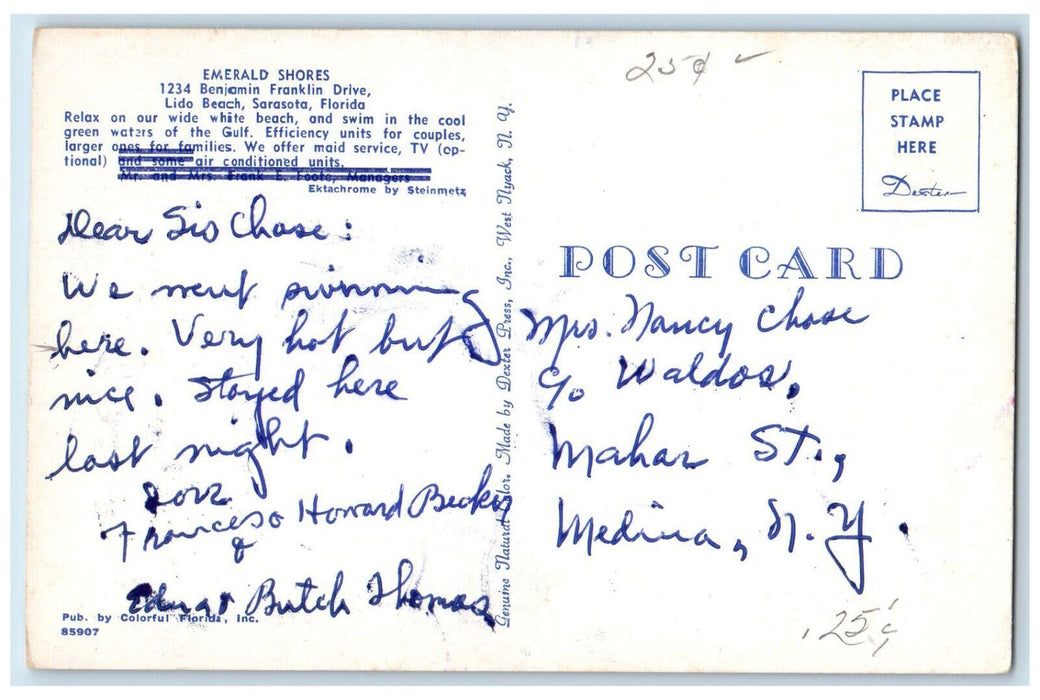 25¢
EMERALD SHORES
1234 Benjamin Franklin Drive,
Lido Beach, Sarasota, Florida
Relax on our wide white beach, and swim in the cool
green waters of the Gulf. Efficiency units for couples,
larger ones for families. We offer maid service, TV (op-
tional) and some air conditioned units.
Mr. and Mrs. Frank E. Foote, Managers
Ektachrome by Steinmetz
Dear Sis Chase:
We went swimming
here. Very hot but
nice. Stayed here
last night.
Love
Frances & Howard Becker
&
Edna & Butch Thomas
Pub. by Colorful Florida, Inc.
85907
Genuine Natural Color. Made by Dexter Press, Inc., West Nyack, N. Y.
PLACE
STAMP
HERE
Dexter
POST CARD
Mrs. Nancy Chase
c/o Waldos,
Mahar St.,
Medina, N.Y.
.25¢